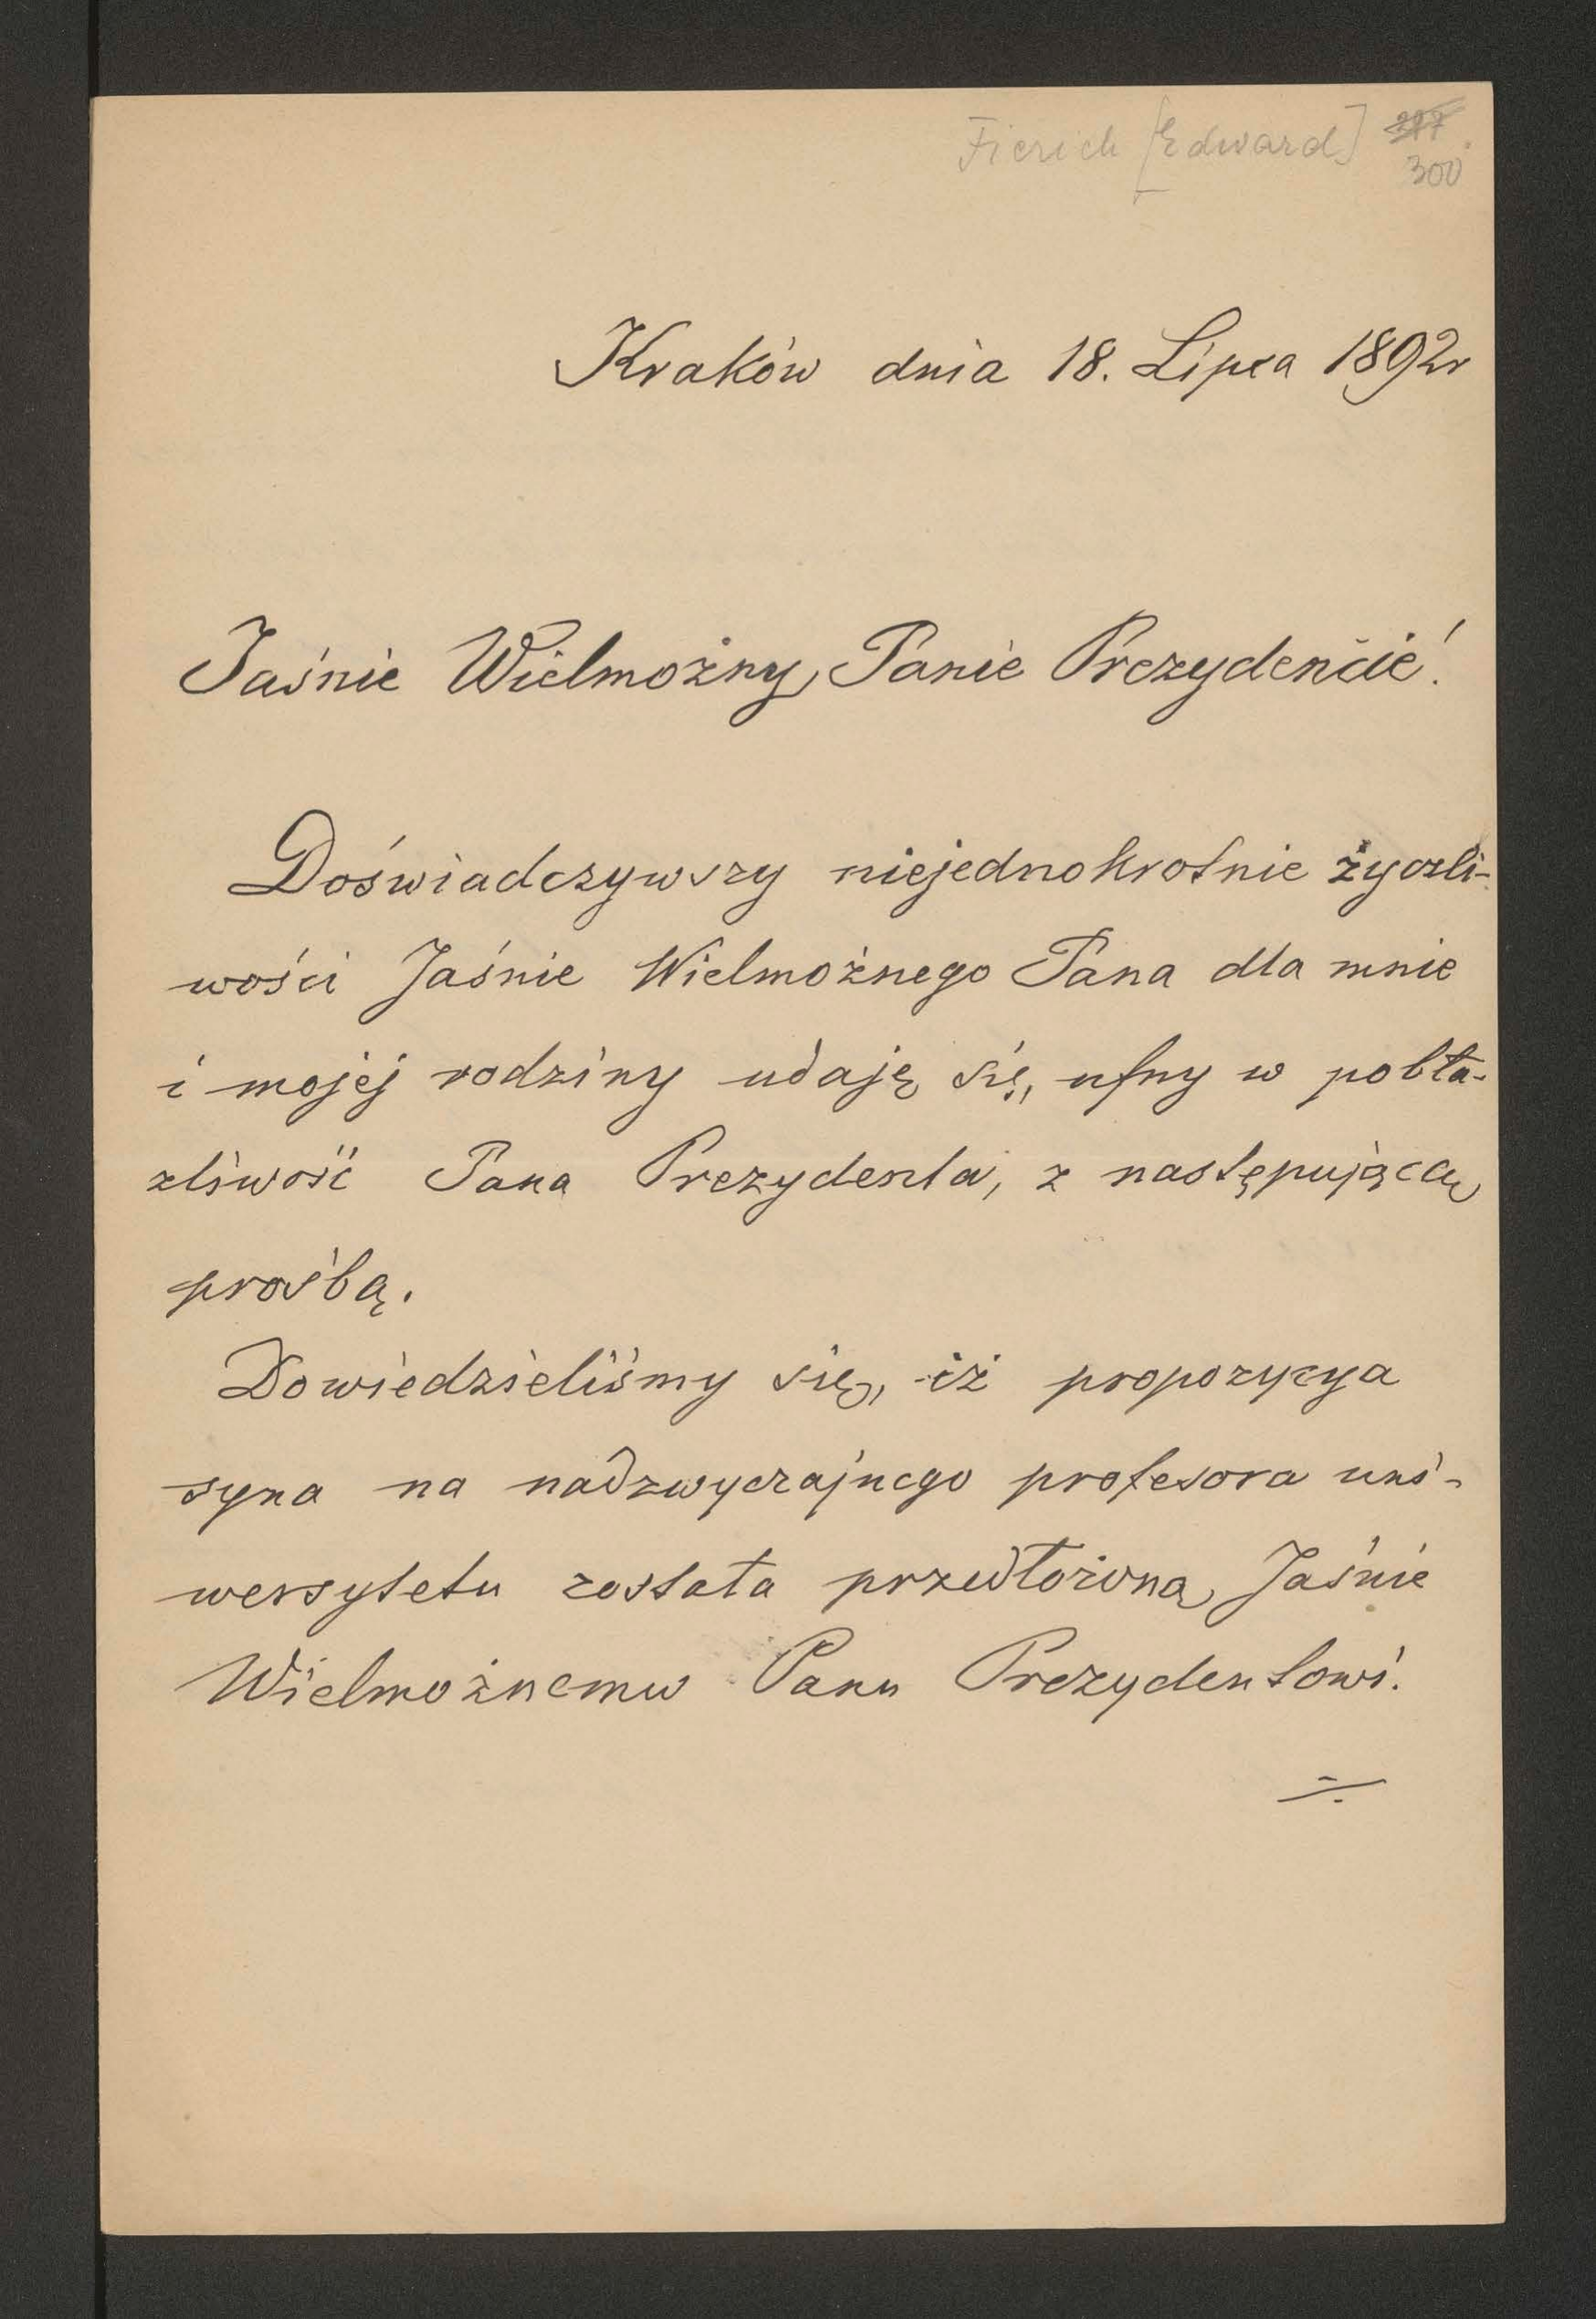 Fierich [Edward] 297
300
Kraków dnia 18. Lipca 1892r
Jaśnie Wielmożny Panie Prezydencie!
Doświadczywszy niejednokrotnie życzli-
wości Jaśnie Wielmożnego Pana dla mnie
i mojej rodziny udaję się, ufny w pobła-
żliwość Pana Prezydenta, z następującą
prośbą.
Dowiedzieliśmy się, iż propozycya
syna na nadzwyczajnego profesora uni-
wersytetu została przedłożoną Jaśnie
Wielmożnemu Panu Prezydentowi.